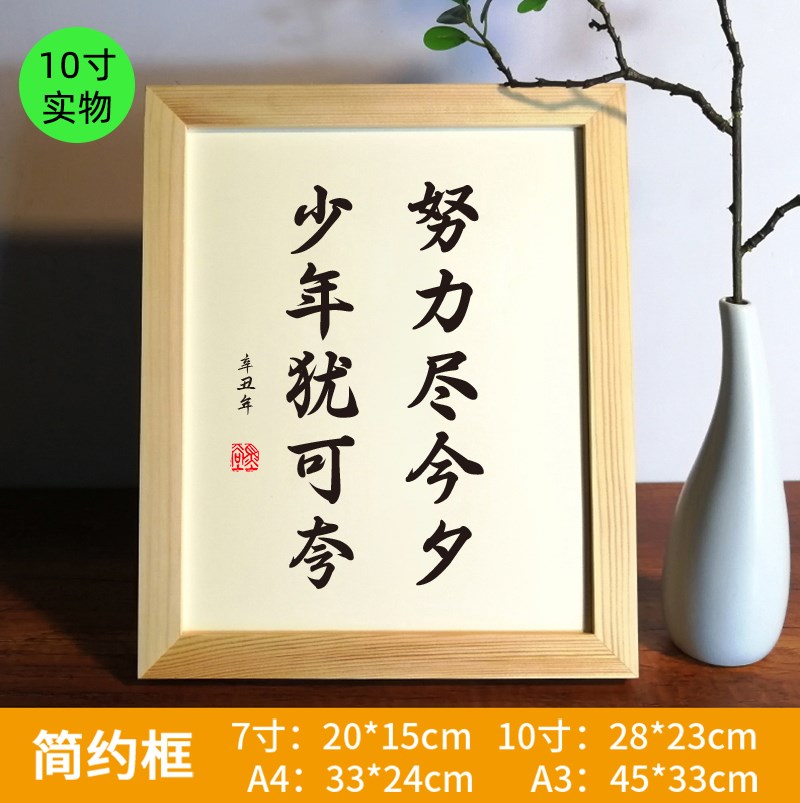 10寸
实物
努力尽今夕
少年犹可夸
辛丑年
简约框
7寸：20*15cm 10寸：28*23cm
A4：33*24cm A3：45*33cm